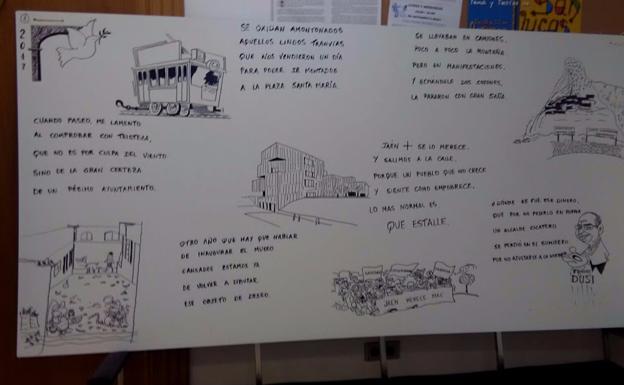 1
2017
SE OXIDAN AMONTONADOS
AQUELLOS LINDOS TRANVÍAS
QUE NOS VENDIERON UN DÍA
PARA PODER IR MONTADO
A LA PLAZA SANTA MARÍA.
SE LLEVABAN EN CAMIONES,
POCO A POCO LA MONTAÑA
PERO EN MANIFESTACIONES.
Y ECHÁNDOLE DOS COJONES,
LA PARARON CON GRAN SAÑA.
CUANDO PASEO, ME LAMENTO
AL COMPROBAR CON TRISTEZA,
QUE NO ES POR CULPA DEL VIENTO
SINO DE LA GRAN CERTEZA
DE UN PÉSIMO AYUNTAMIENTO.
JAÉN + SE LO MERECE.
Y SALIMOS A LA CALLE.
PORQUE UN PUEBLO QUE NO CRECE
Y SIENTE COMO EMPOBRECE.
LO MAS NORMAL ES
QUE ESTALLE.
OTRO AÑO QUE HAY QUE HABLAR
DE INAUGURAR EL MUSEO
CANSADOS ESTAMOS YA
DE VOLVER A DIBUJAR.
ESE OBJETO DE DESEO.
DÓNDE SE FUE ESE DINERO,
QUE POR NO PEDIRLO EN FORMA
UN ALCALDE CICATERO
SE PERDIÓ EN EL SUMIDERO
POR NO AJUSTARSE A LA NORMA
JAEN MERECE MAS
DUSI